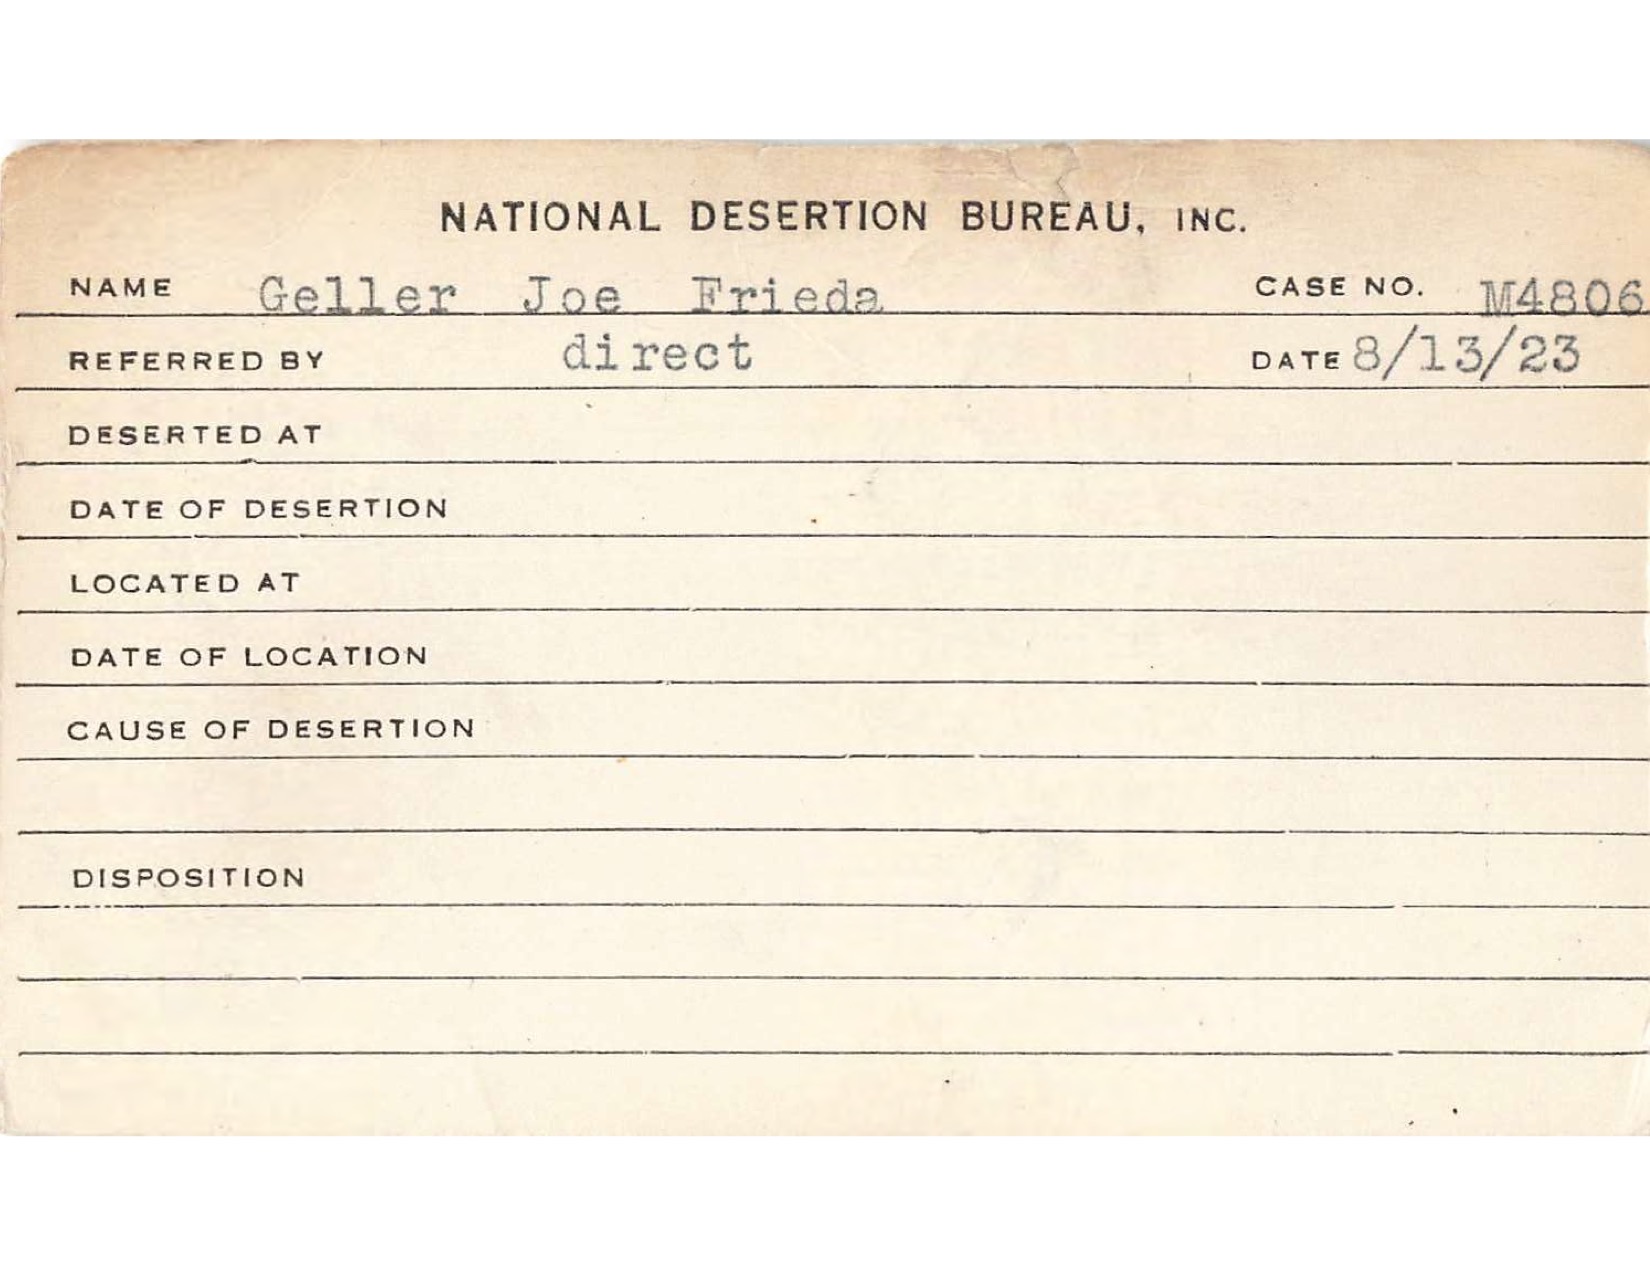 NATIONAL DESERTION BUREAU, INC.
NAME Geller Joe Frieda CASE NO. M4806
REFERRED BY direct DATE 8/13/23
DESERTED AT
DATE OF DESERTION
LOCATED AT
DATE OF LOCATION
CAUSE OF DESERTION
DISPOSITION